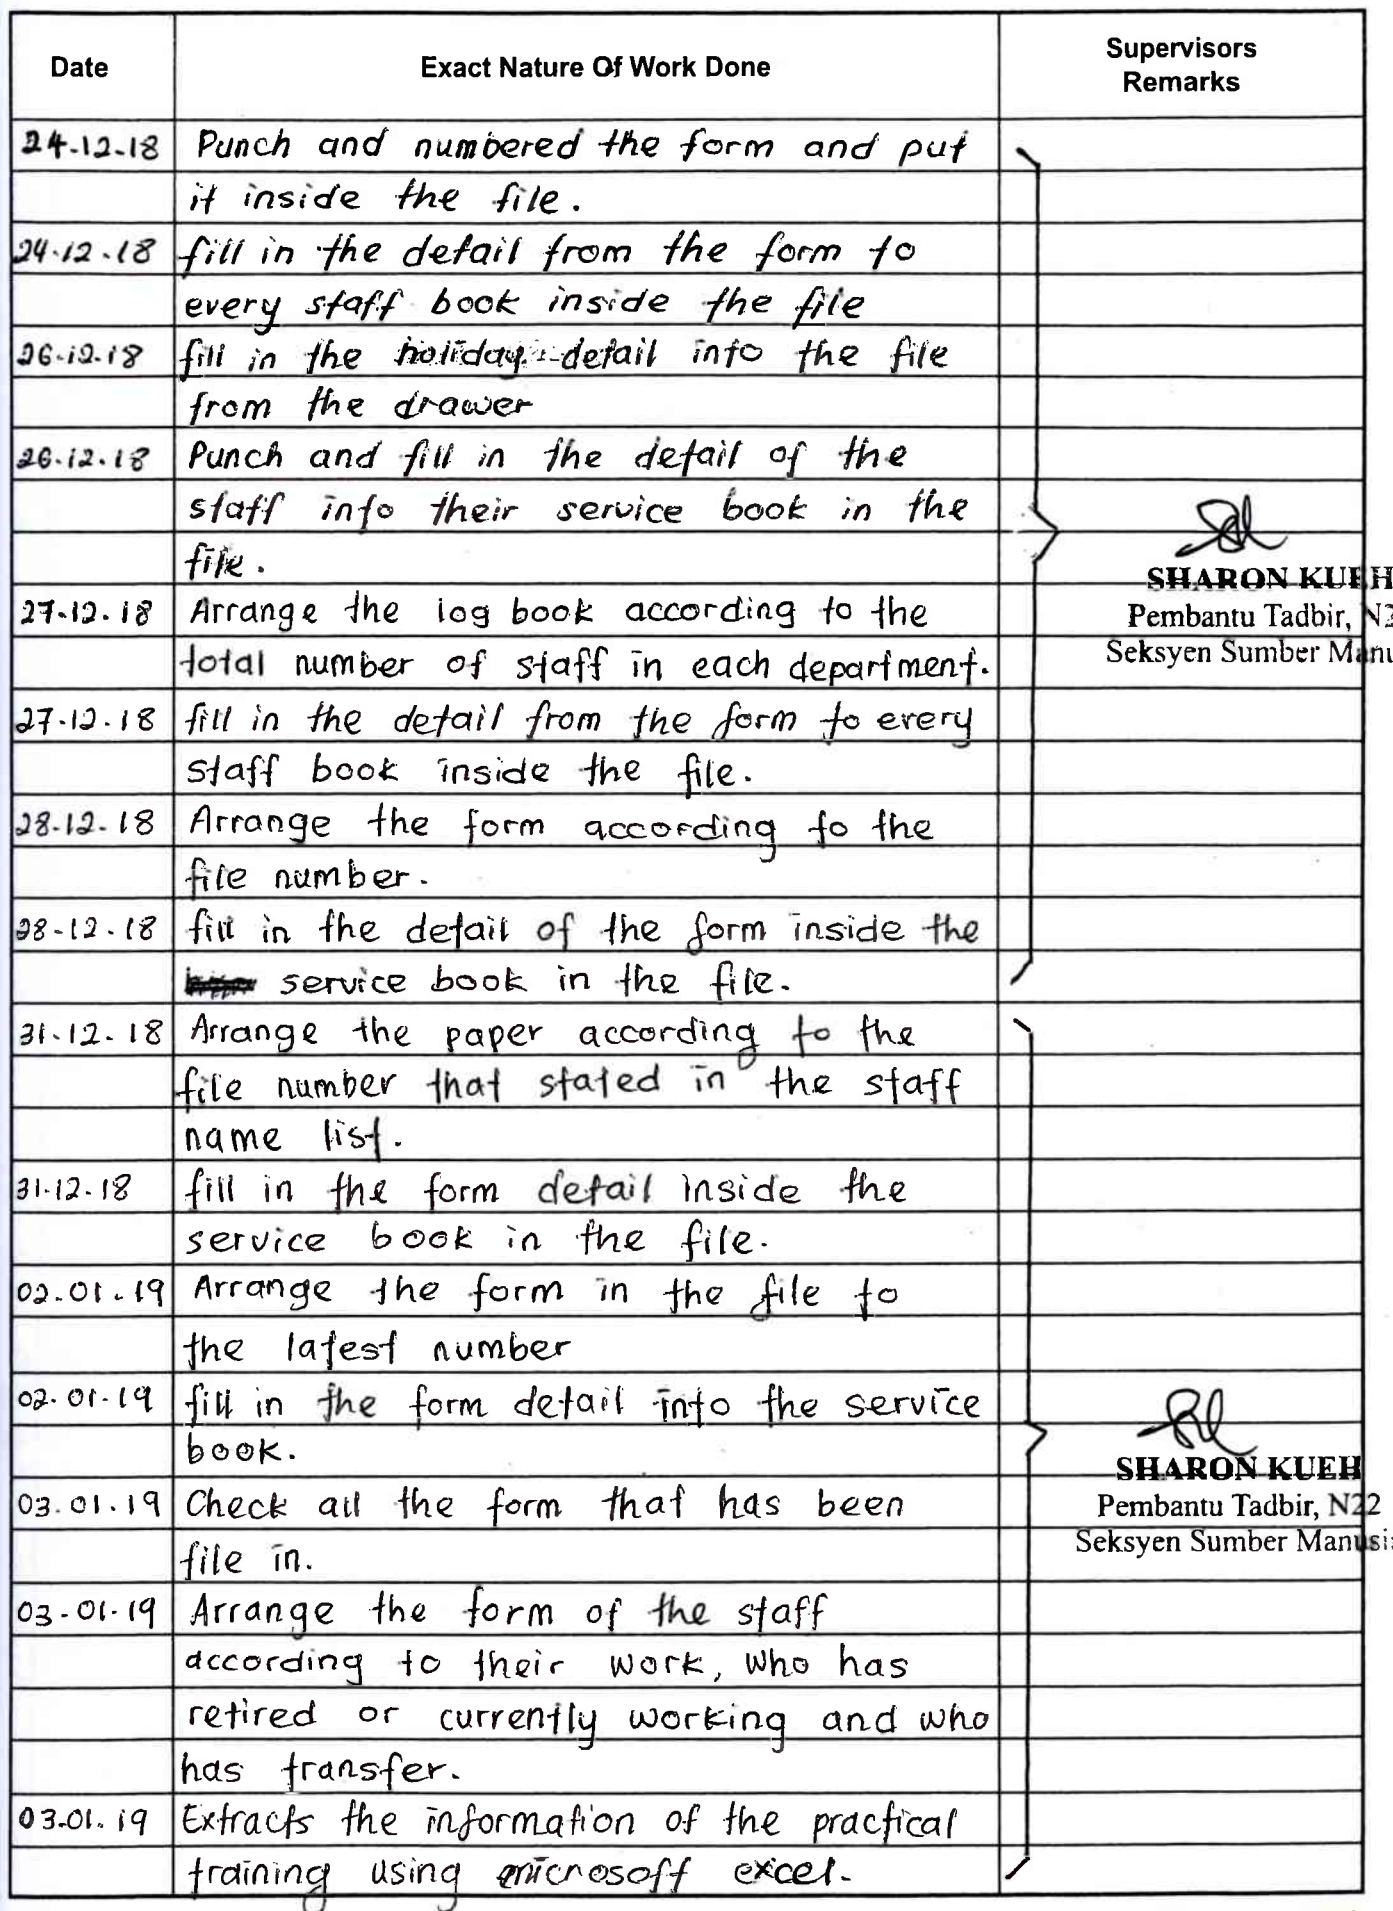 Date Exact Nature Of Work Done Supervisors
Remarks
24.12.18 Punch and numbered the form and put
it inside the file.
24.12.18 fill in the detail from the form to
every staff book inside the file
26.12.18 fill in the holiday detail into the file
from the drawer
26.12.18 Punch and fill in the detail of the
staff into their service book in the
file.
SHARON KUEH
27.12.18 Arrange the log book according to the
Pembantu Tadbir,
total number of staff in each department.
Seksyen Sumber Manu
27.12.18 fill in the detail from the form to every
staff book inside the file.
28.12.18 Arrange the form according to the
file number.
28.12.18 fill in the detail of the form inside the
service book in the file.
31.12.18 Arrange the paper according to the
file number that stated in the staff
name list.
31.12.18 fill in the form detail inside the
service book in the file.
02.01.19 Arrange the form in the file to
the latest number
02.01.19 fill in the form detail into the service
book.
SHARON KUEH
03.01.19 Check all the form that has been
Pembantu Tadbir, N22
file in.
Seksyen Sumber Manusi
03.01.19 Arrange the form of the staff
according to their work, who has
retired or currently working and who
has transfer.
03.01.19 Extracts the information of the practical
training using microsoft excel.